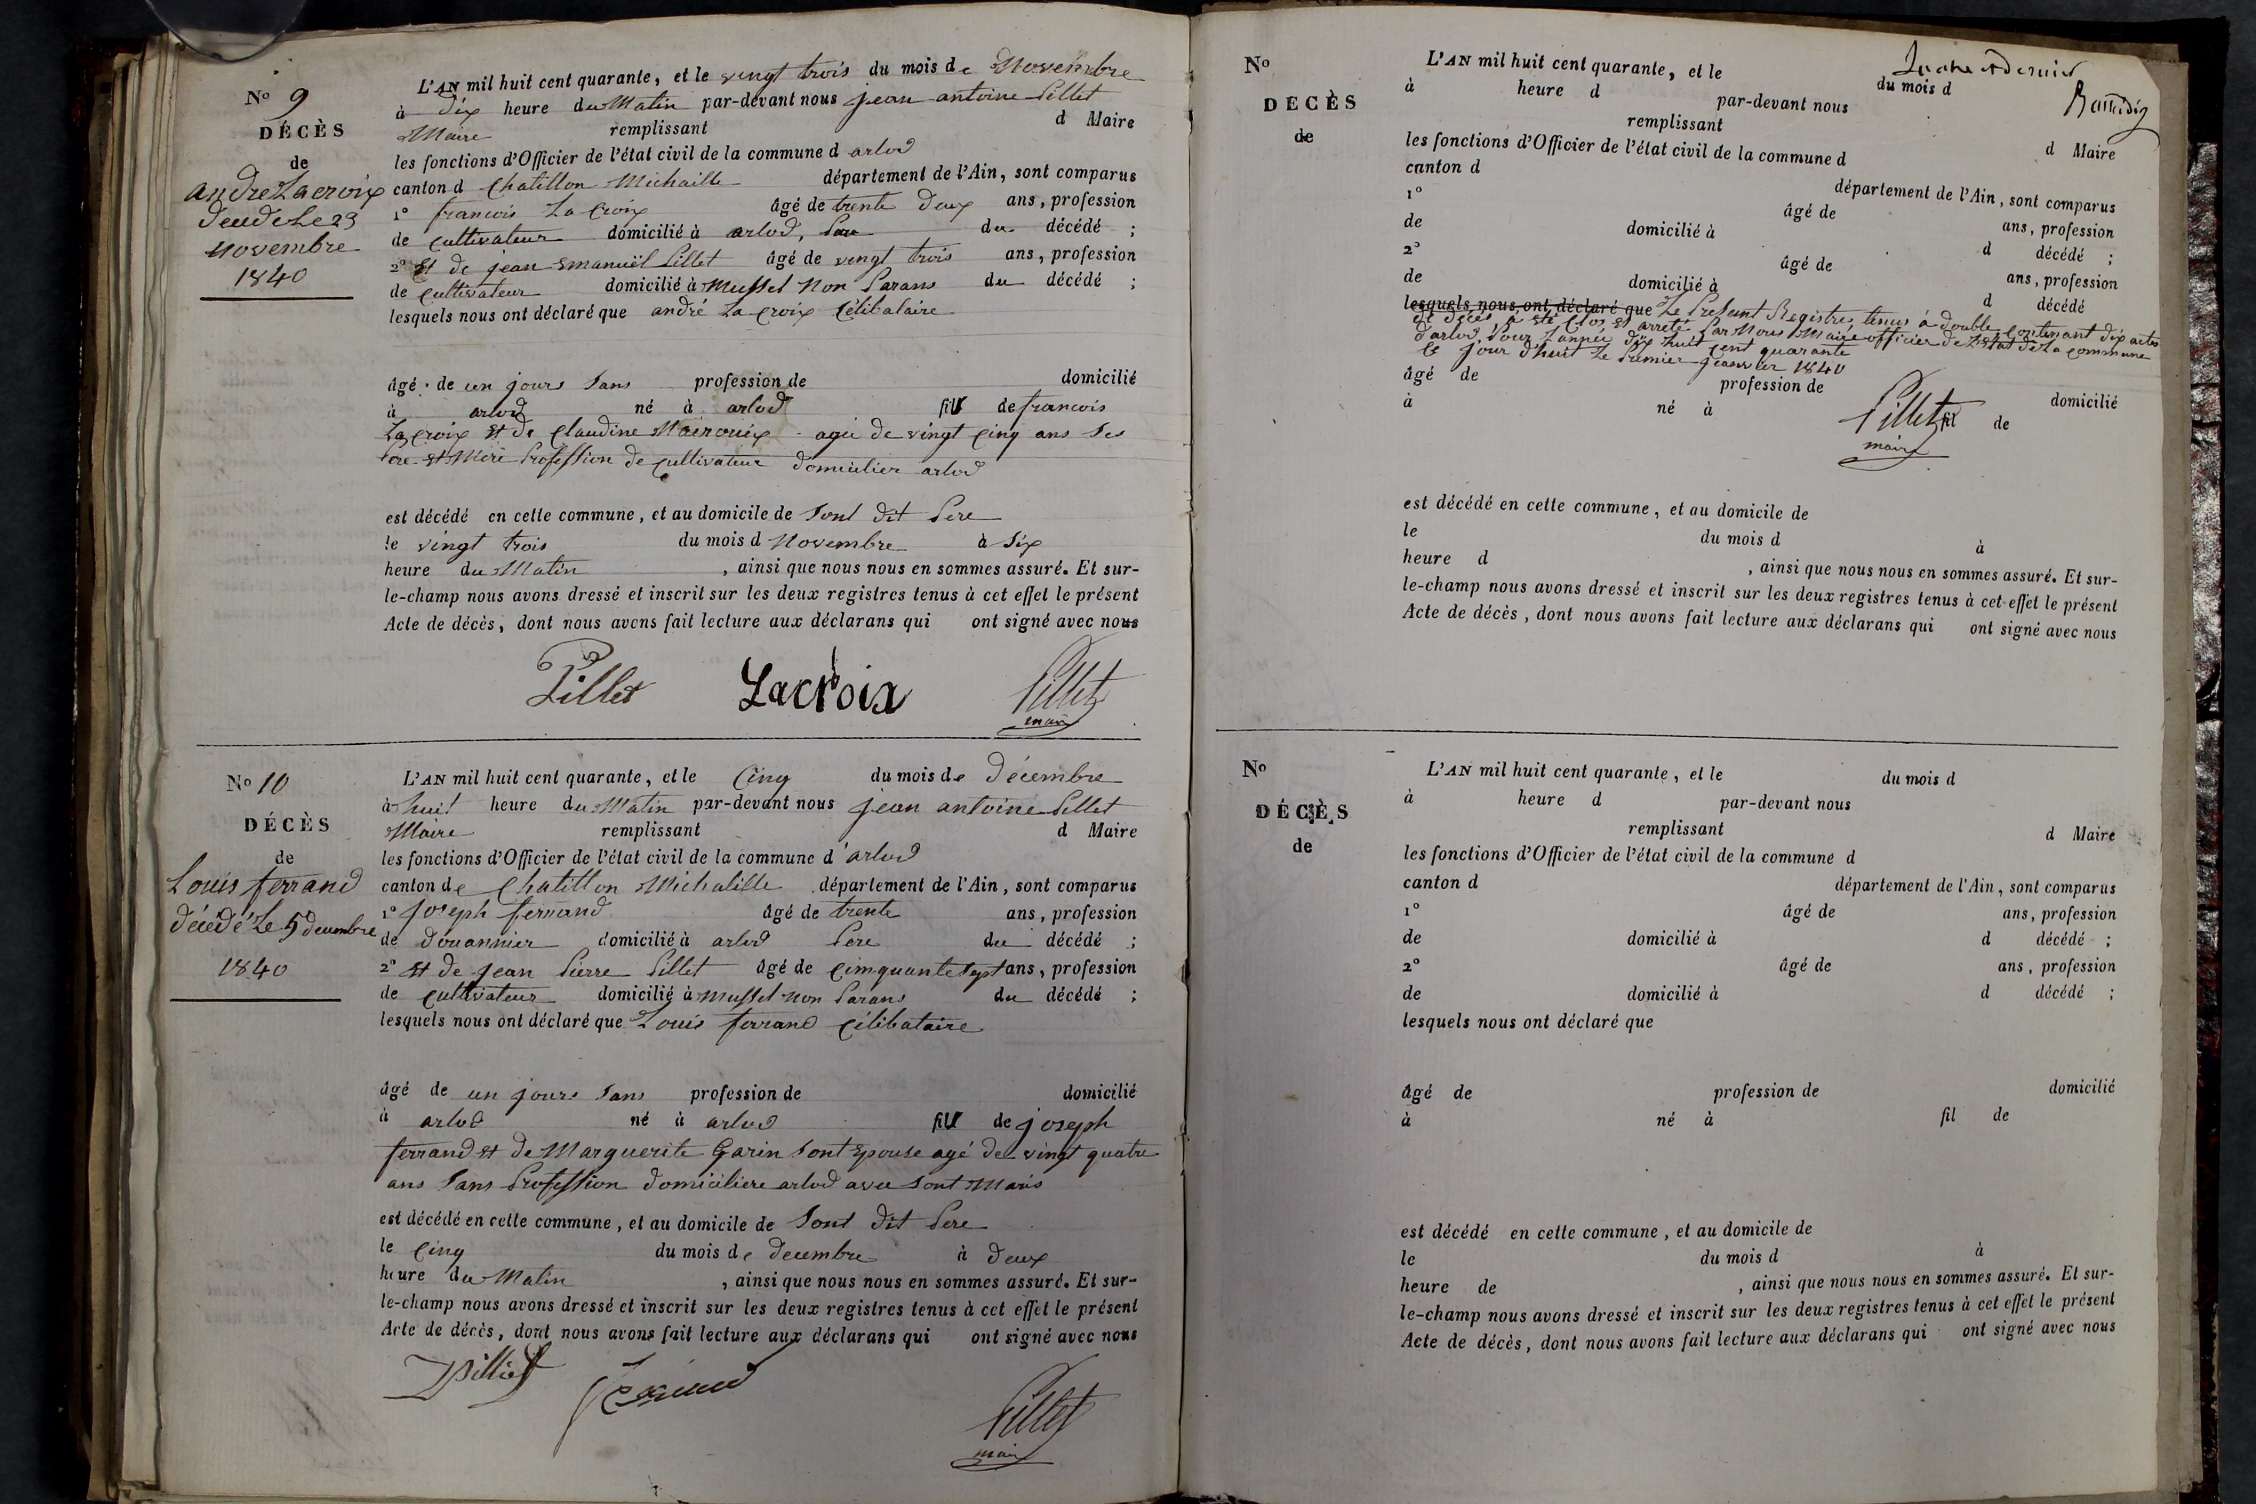 No 9
DÉCÈS
de
andre Lacroix
deudé Le 23
Novembre
1840
L'AN mil huit cent quarante, et le vingt trois du mois de Novembre
à Dix heure du Matin par-devant nous jean antoine Pillet
Maire remplissant d Maire
les fonctions d'Officier de l'état civil de la commune d arlod
canton d Chatillon Michaille département de l'Ain, sont comparus
1º francois La Croix âgé de trente deux ans, profession
de cultivateur domicilié à arlod, du décédé ;
2º Et de jean Emanuël Pillet âgé de vingt trois ans, profession
de cultivateur domicilié à Mussel Non Parans du décédé ;
lesquels nous ont déclaré que andré La Croix Célibataire
âgé de un jours Sans profession de domicilié
à arlod né à arlod fils de francois
La Croix Et de Claudine agée de vingt Cinq ans Ses
Pere Et Mere Profession de Cultivateur domicilier arlod
est décédé en cette commune, et au domicile de Sont dit Pere
le vingt trois du mois d Novembre à Six
heure du Matin , ainsi que nous nous en sommes assuré. Et sur-
le-champ nous avons dressé et inscrit sur les deux registres tenus à cet effet le présent
Acte de décès, dont nous avons fait lecture aux déclarans qui ont signé avec nous
Pillet Lacroix Pillet
maire
No 10
DÉCÈS
de
Louis ferrand
décédé Le 5 decembre
1840
L'AN mil huit cent quarante, et le Cinq du mois de Décembre
à huit heure du Matin par-devant nous jean antoine Pillet
Maire remplissant d Maire
les fonctions d'Officier de l'état civil de la commune d'arlod
canton de Chatillon Michalille département de l'Ain, sont comparus
1º Joseph ferrand âgé de trente ans, profession
de douannier domicilié à arlod Pere du décédé ;
2º Et de jean Pierre Pillet âgé de Cimquante Sept ans, profession
de cultivateur domicilié à Mussel Non Parans du décédé ;
lesquels nous ont déclaré que Louis ferrand Célibataire
âgé de un jours Sans profession de domicilié
à arlod né à arlod fils de joseph
ferrand Et de Marguerite Garin Sont Epouse agé de vingt quatre
ans Sans Profession domiciliere arlod avec Sont Maris
est décédé en cette commune, et au domicile de Sont dit Pere
le Cinq du mois de decembre à deux
heure du Matin , ainsi que nous nous en sommes assuré. Et sur-
le-champ nous avons dressé et inscrit sur les deux registres tenus à cet effet le présent
Acte de décès, dont nous avons fait lecture aux déclarans qui ont signé avec nous
Pilliet Pillet
maire
No
DECÈS
de
et dernier
L'AN mil huit cent quarante, et le du mois d
à heure d par-devant nous
remplissant d Maire
les fonctions d'Officier de l'état civil de la commune d
canton d département de l'Ain, sont comparus
1º âgé de ans, profession
de domicilié à d décédé ;
2º âgé de ans, profession
de domicilié à d décédé
lesquels nous ont déclaré que Le Present Registres tenus à double Contenant dix actes
de décès a été Clos et arreté Par Nous Maire officier de L'Etat de La Commune
d'arlod, Pour L'année dix huit Cent quarante
Ce jour d'huit Le Premier Janvier 1840
âgé de profession de domicilié
à né à fil de
Pillet
maire
est décédé en cette commune, et au domicile de
le du mois d à
heure d , ainsi que nous nous en sommes assuré. Et sur-
le-champ nous avons dressé et inscrit sur les deux registres tenus à cet effet le présent
Acte de décès, dont nous avons fait lecture aux déclarans qui ont signé avec nous
No
DÉCÈS
de
L'AN mil huit cent quarante, et le du mois d
à heure d par-devant nous
remplissant d Maire
les fonctions d'Officier de l'état civil de la commune d
canton d département de l'Ain, sont comparus
1º âgé de ans, profession
de domicilié à d décédé ;
2º âgé de ans, profession
de domicilié à d décédé ;
lesquels nous ont déclaré que
âgé de profession de domicilié
à né à fil de
est décédé en cette commune, et au domicile de
le du mois d à
heure de , ainsi que nous nous en sommes assuré. Et sur-
le-champ nous avons dressé et inscrit sur les deux registres tenus à cet effet le présent
Acte de décès, dont nous avons fait lecture aux déclarans qui ont signé avec nous